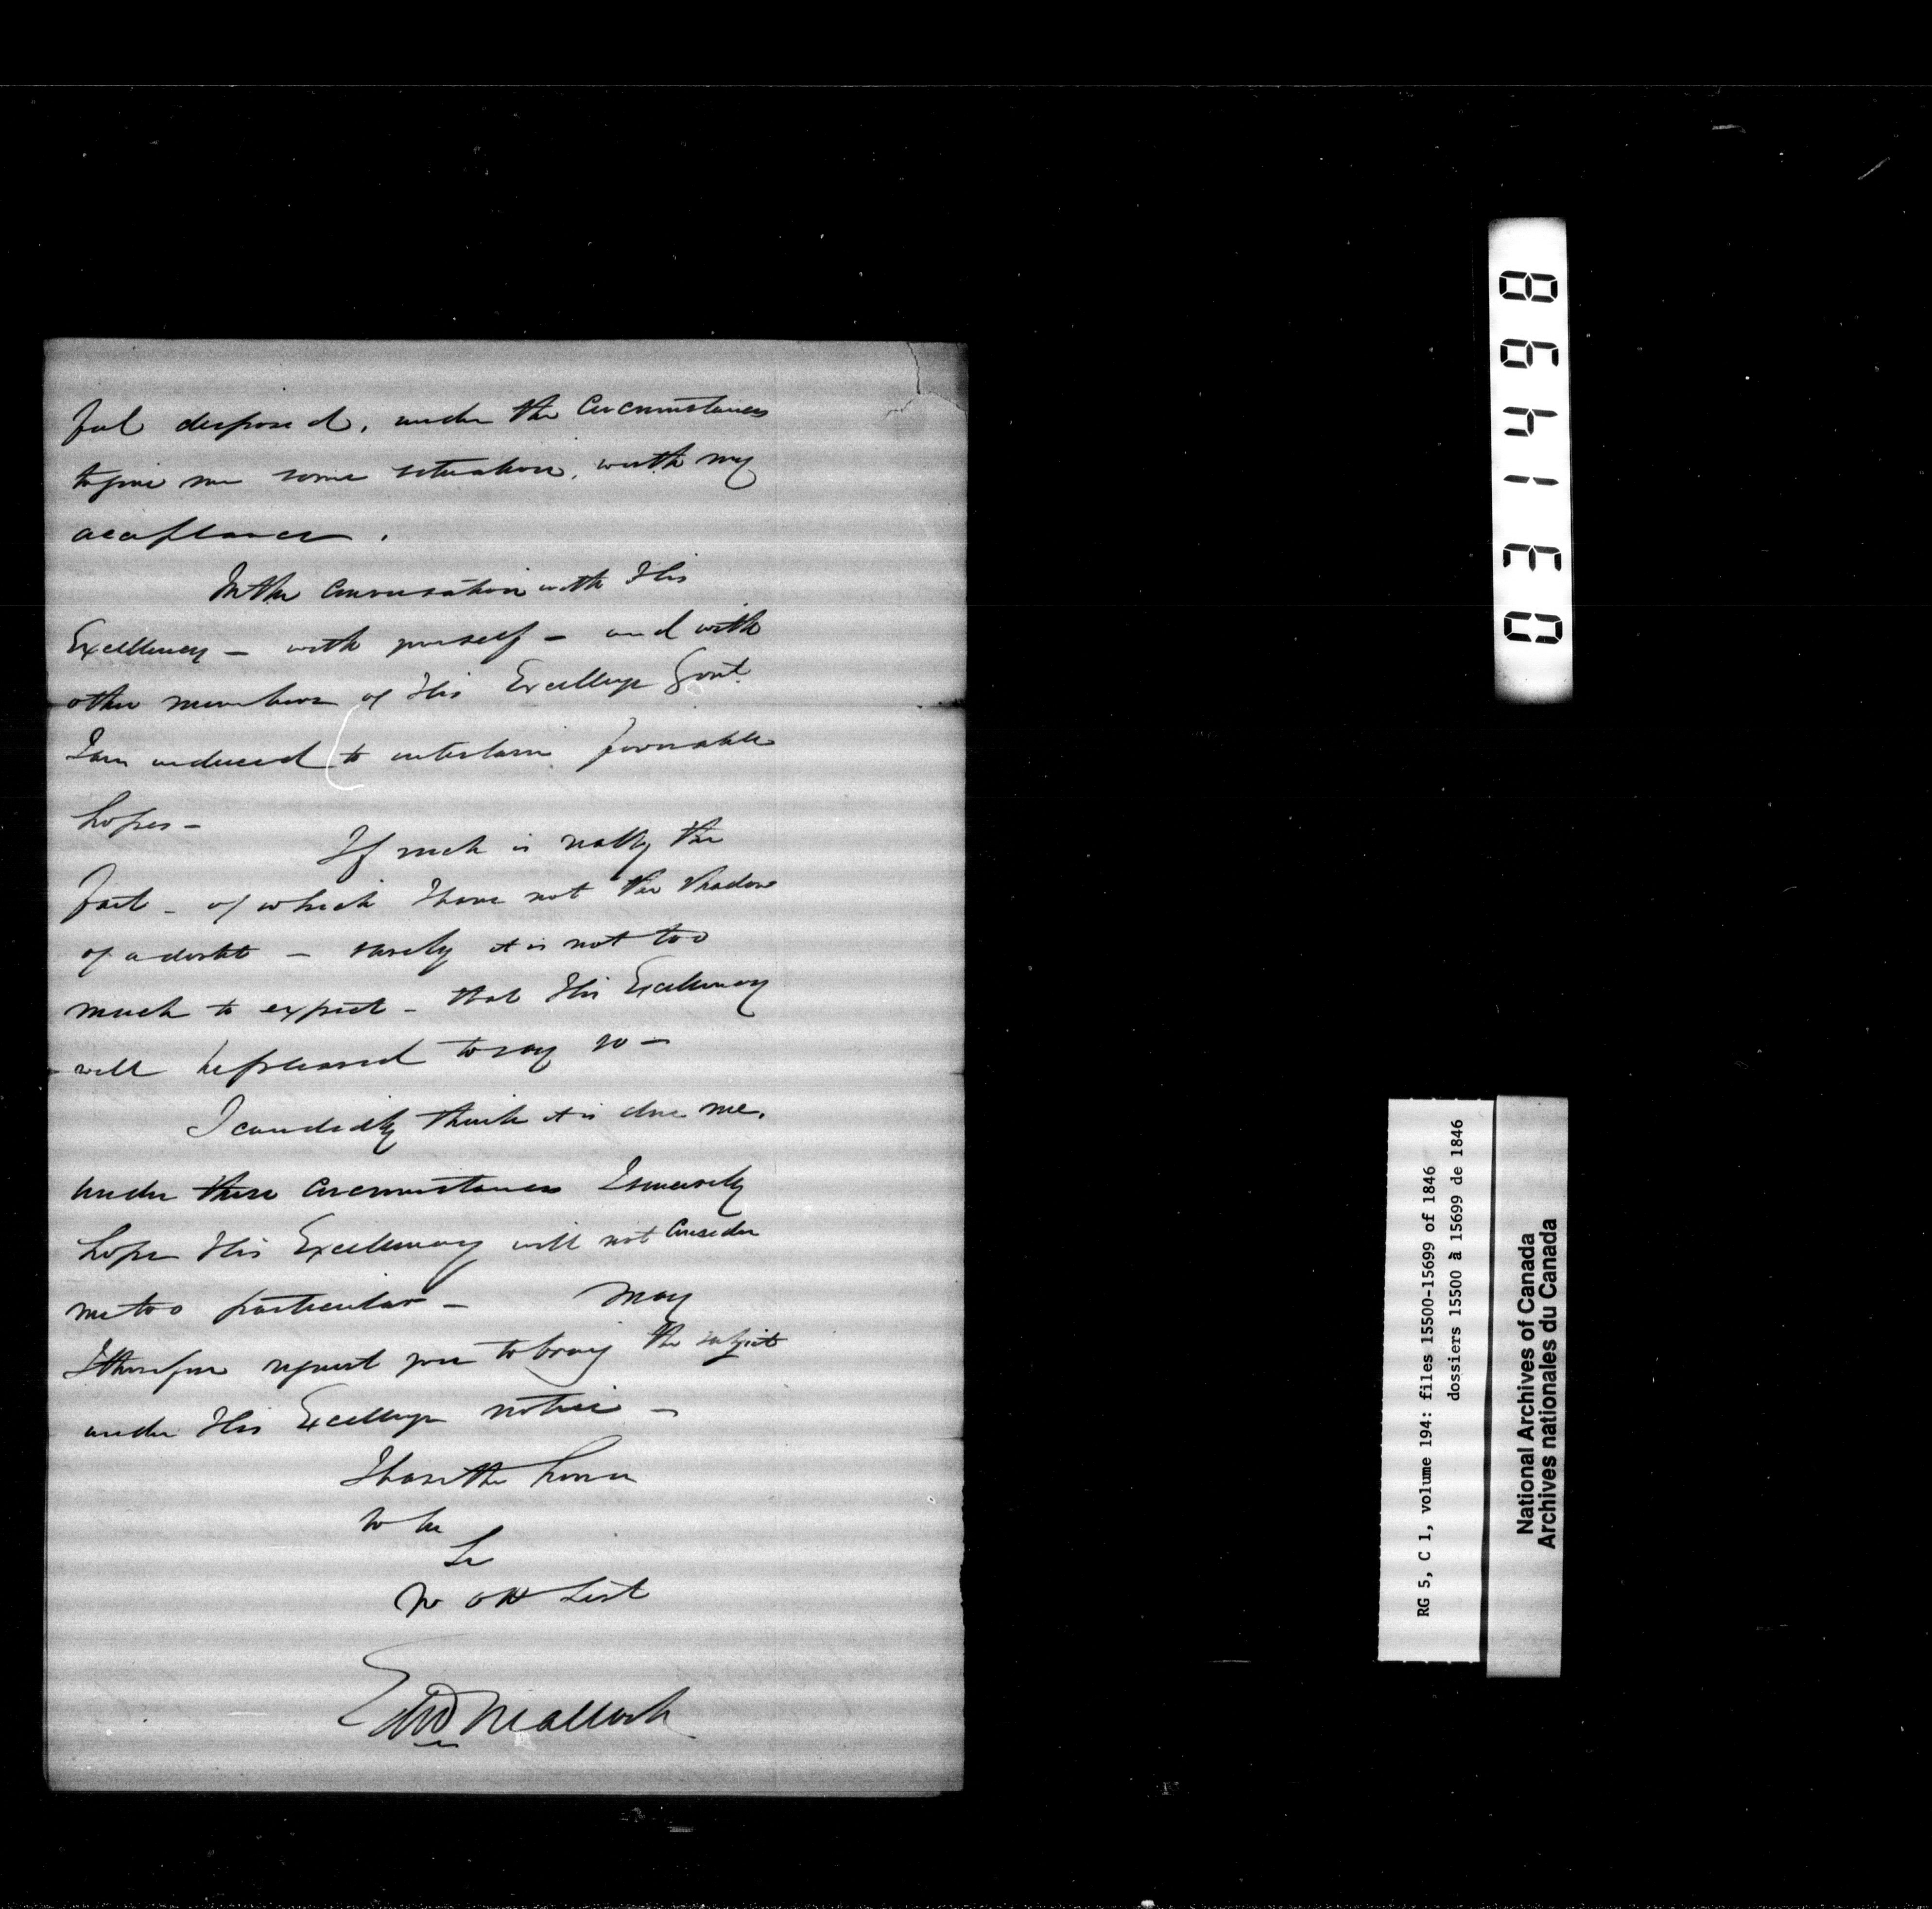 feel disposed, under the Circumstances
to give me some situation, worth my
acceptance.
In the Conversation with His
Excellency — with yourself — and with
other members of His Excellencys Govt.
I am induced to entertain favorable
hopes —
If such is really the
fact — of which I have not the shadow
of a doubt — surely it is not too
much to expect — that His Excellency
will be pleased to say so —
I candidly think it is due me.
Under these Circumstances I sincerely
hope His Excellency will not Consider
me too particular — May
I therefore request you to bring the subject
under His Excellencys notice —
I have the honor
to be
Sir
Yr Ob Sert
Edwd Malloch
031498
RG 5, C 1, volume 194: files 15500-15699 of 1846
dossiers 15500 à 15699 de 1846
National Archives of Canada
Archives nationales du Canada